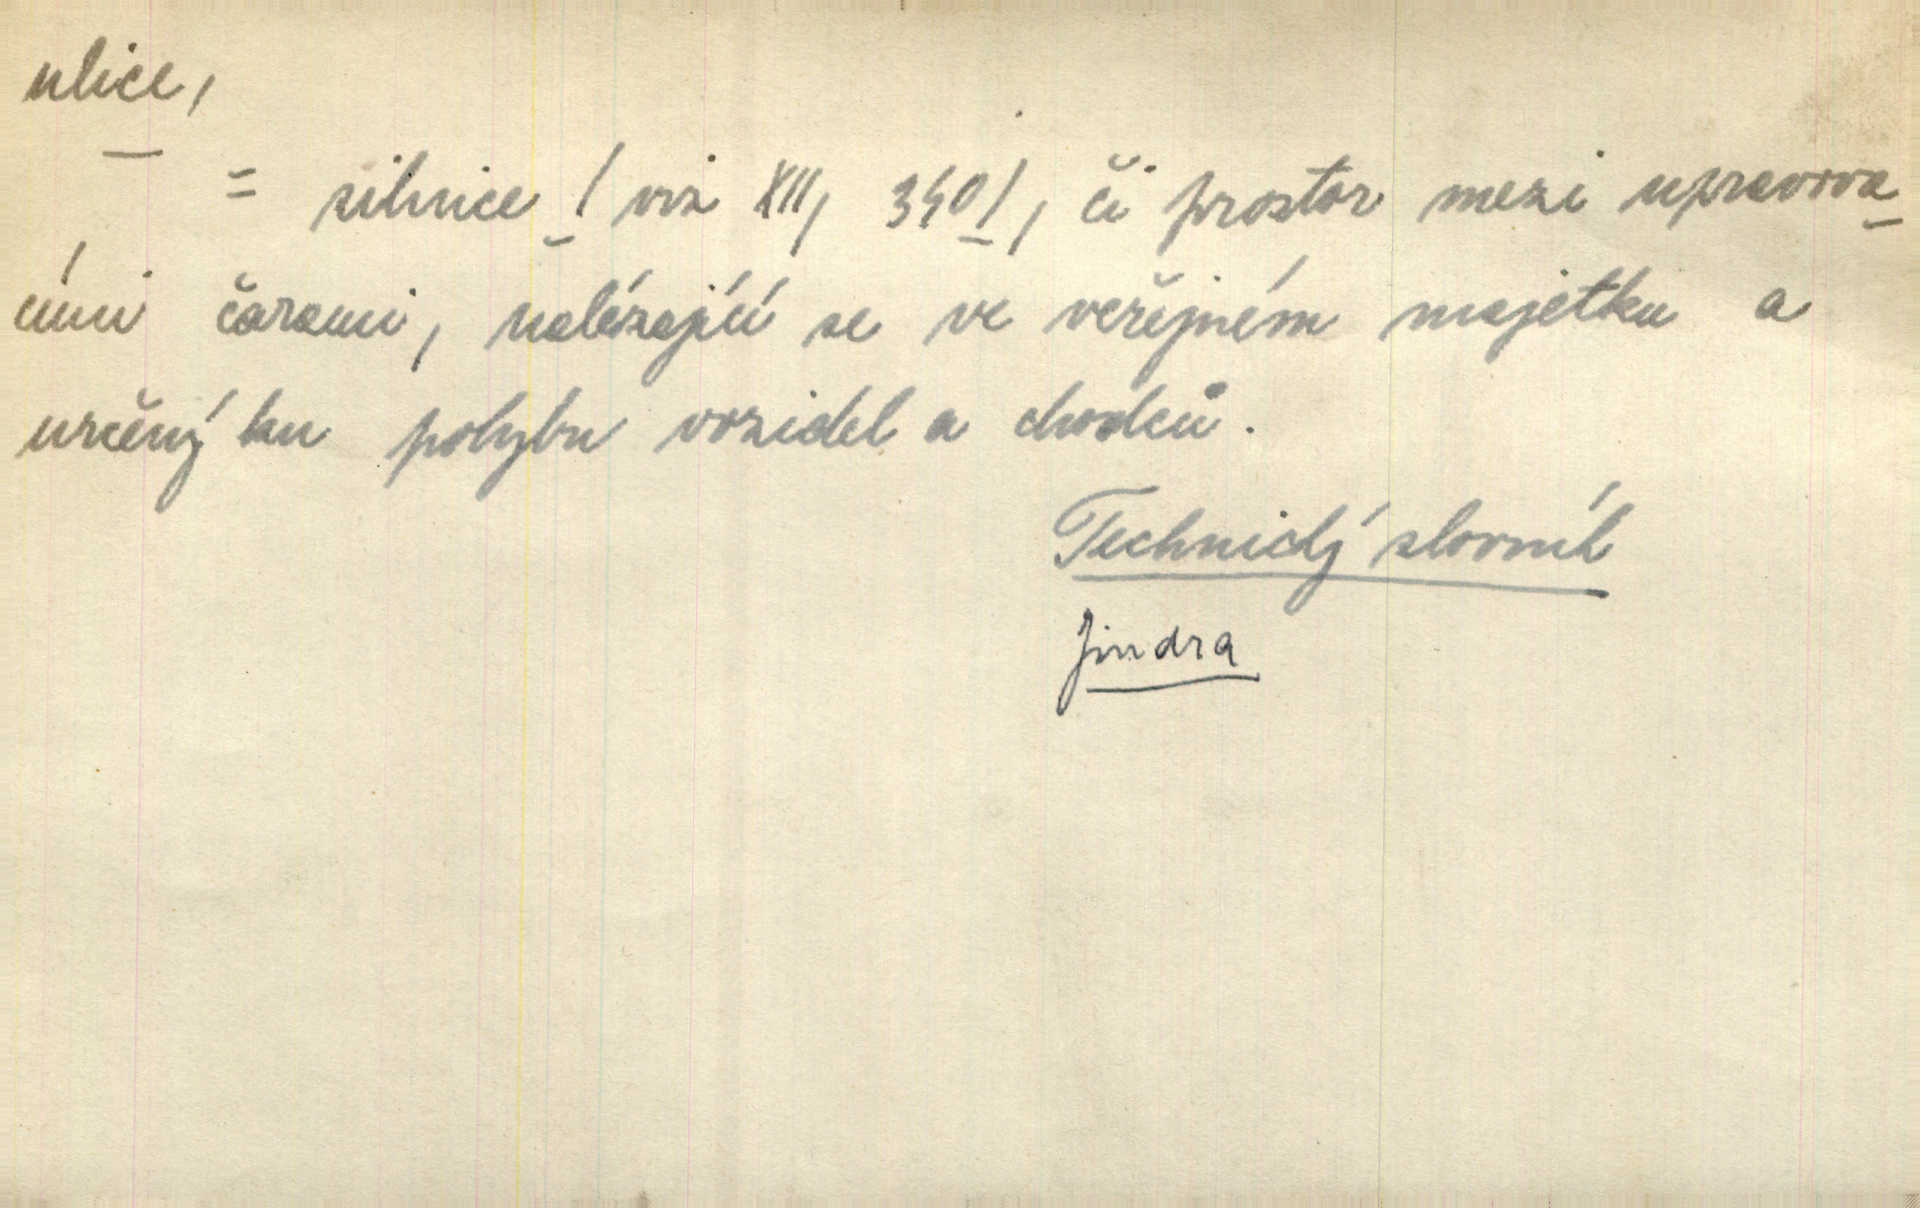 ulice,
= silnice / viz XII, 340/, či prostor mezi upravova
cími čarami, nalézající se ve veřejném majetku a
určený ku pohybu vozidel a chodců.
Technický slovník
Jindra